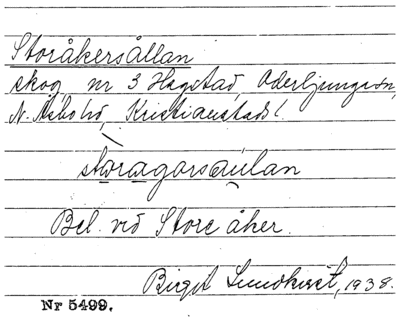 Storåkersållan
skog, nr 3 Hagstad, Oderljungasn,
N. Åsbohd, Kristianstads l.
storagorsaulan
Bel. vid Store åker.
Birgit Lundkvist, 1938.
Nr 5499.